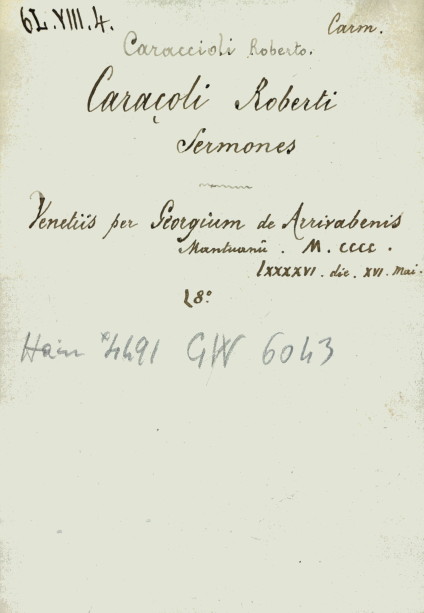 6L.VIII.4.
Carm.
Caraccioli Roberto.
Caraçoli Roberti
Sermones
Venetiis per Georgium de Arrivabenis
Mantuanū. M. CCCC.
lxxxxvi. die. xvi. Mai.
8°
Hain *4491 GW 6043